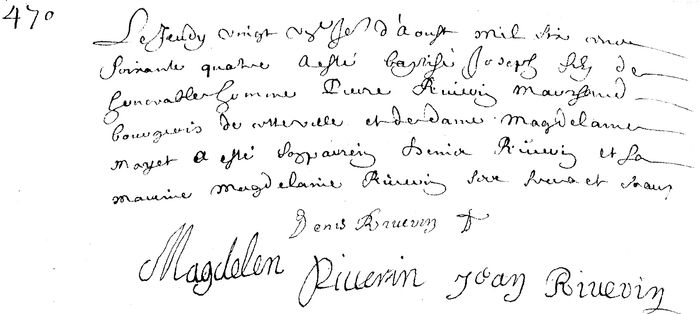 470
Le Jeudy vingt uniesme d'Aoust mil six cens
soixante quatre a esté baptisé Joseph fils de
honorable homme Pierre Riverin marchand
bourgeois de cette ville et de dame Magdelaine
mayet a esté son parrein Denis Riverin et sa
maraine Magdelaine Riverin ses frere et sœur
Denis Riverin
Magdelen Riverin Jean Riverin